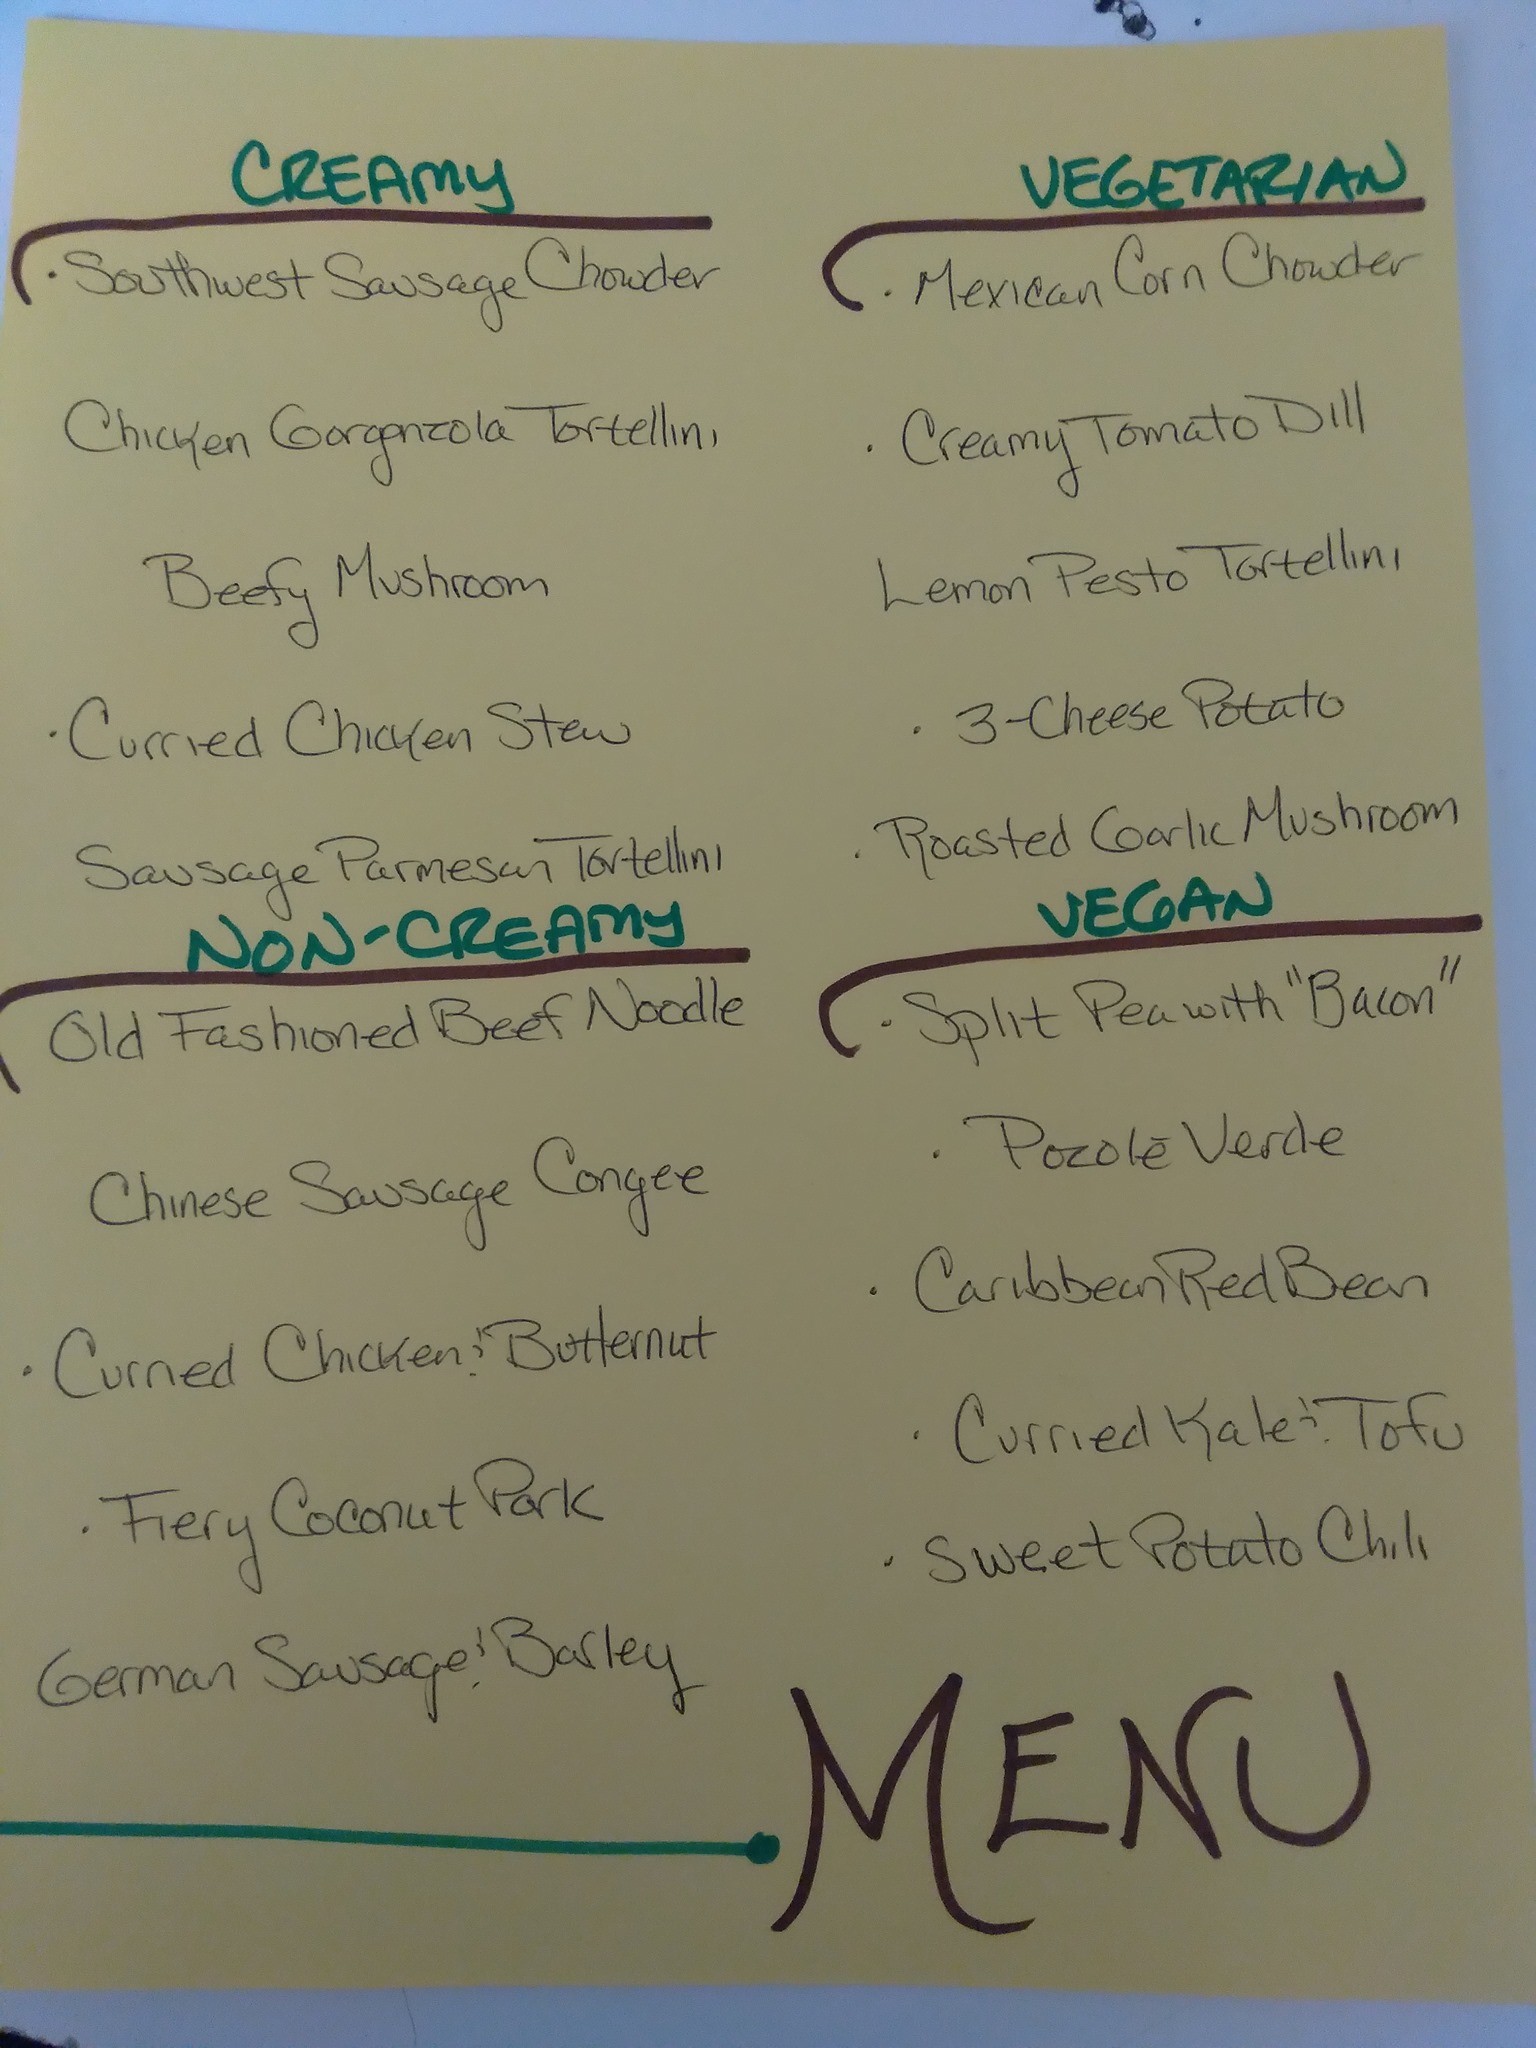 CREAMY
· Southwest Sausage Chowder
Chicken Gorgonzola Tortellini
Beefy Mushroom
· Curried Chicken Stew
Sausage Parmesan Tortellini
NON-CREAMY
Old Fashioned Beef Noodle
Chinese Sausage Congee
· Curried Chicken & Butternut
· Fiery Coconut Pork
German Sausage & Barley
VEGETARIAN
· Mexican Corn Chowder
· Creamy Tomato Dill
Lemon Pesto Tortellini
· 3-Cheese Potato
· Roasted Garlic Mushroom
VEGAN
· Split Pea with "Bacon"
· Pozolé Verde
· Caribbean Red Bean
· Curried Kale & Tofu
· Sweet Potato Chili
MENU